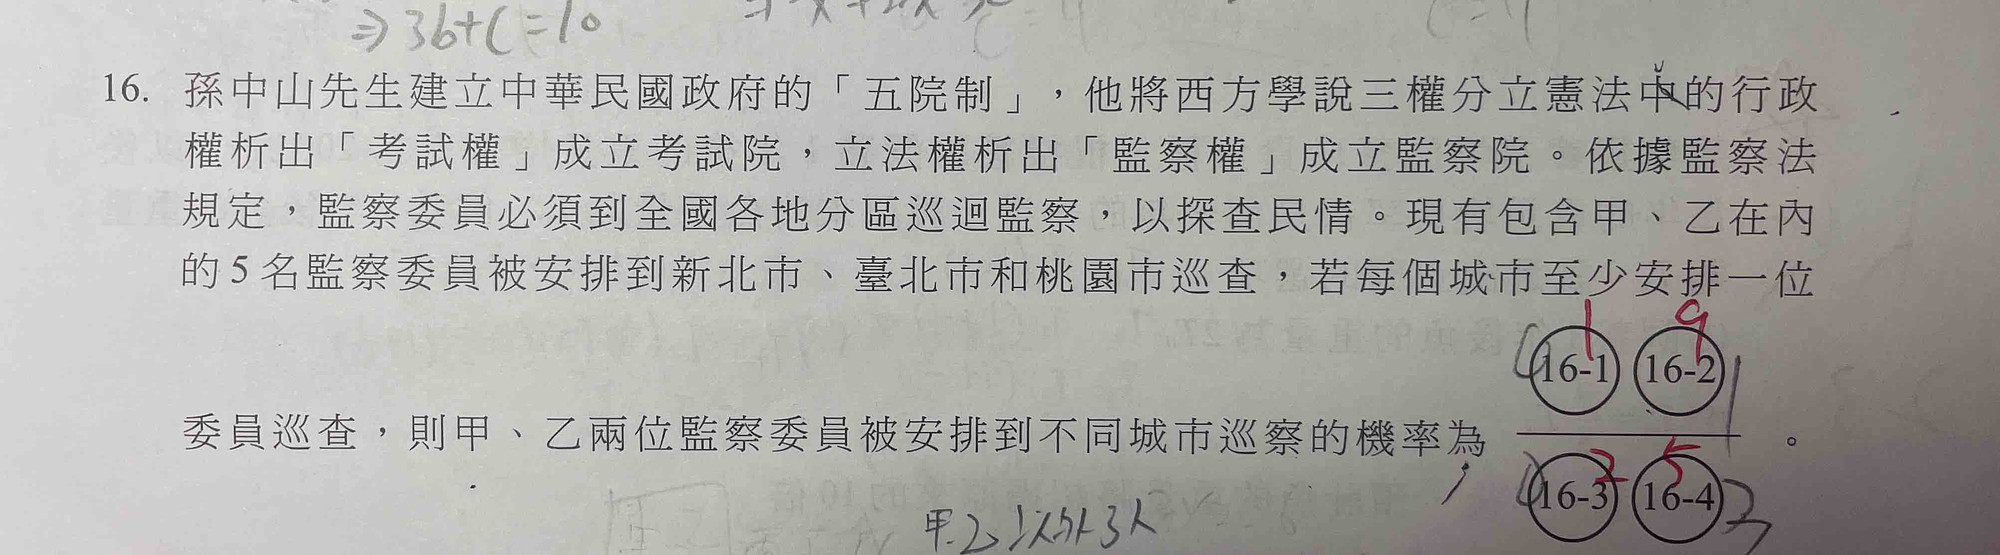 ⇒ 3b+C=10
16. 孫中山先生建立中華民國政府的「五院制」，他將西方學說三權分立憲法中的行政
權析出「考試權」成立考試院，立法權析出「監察權」成立監察院。依據監察法
規定，監察委員必須到全國各地分區巡迴監察，以探查民情。現有包含甲、乙在內
的5名監察委員被安排到新北市、臺北市和桃園市巡查，若每個城市至少安排一位
1 9
16-1 16-2
委員巡查，則甲、乙兩位監察委員被安排到不同城市巡察的機率為 。
2 5
16-3 16-4